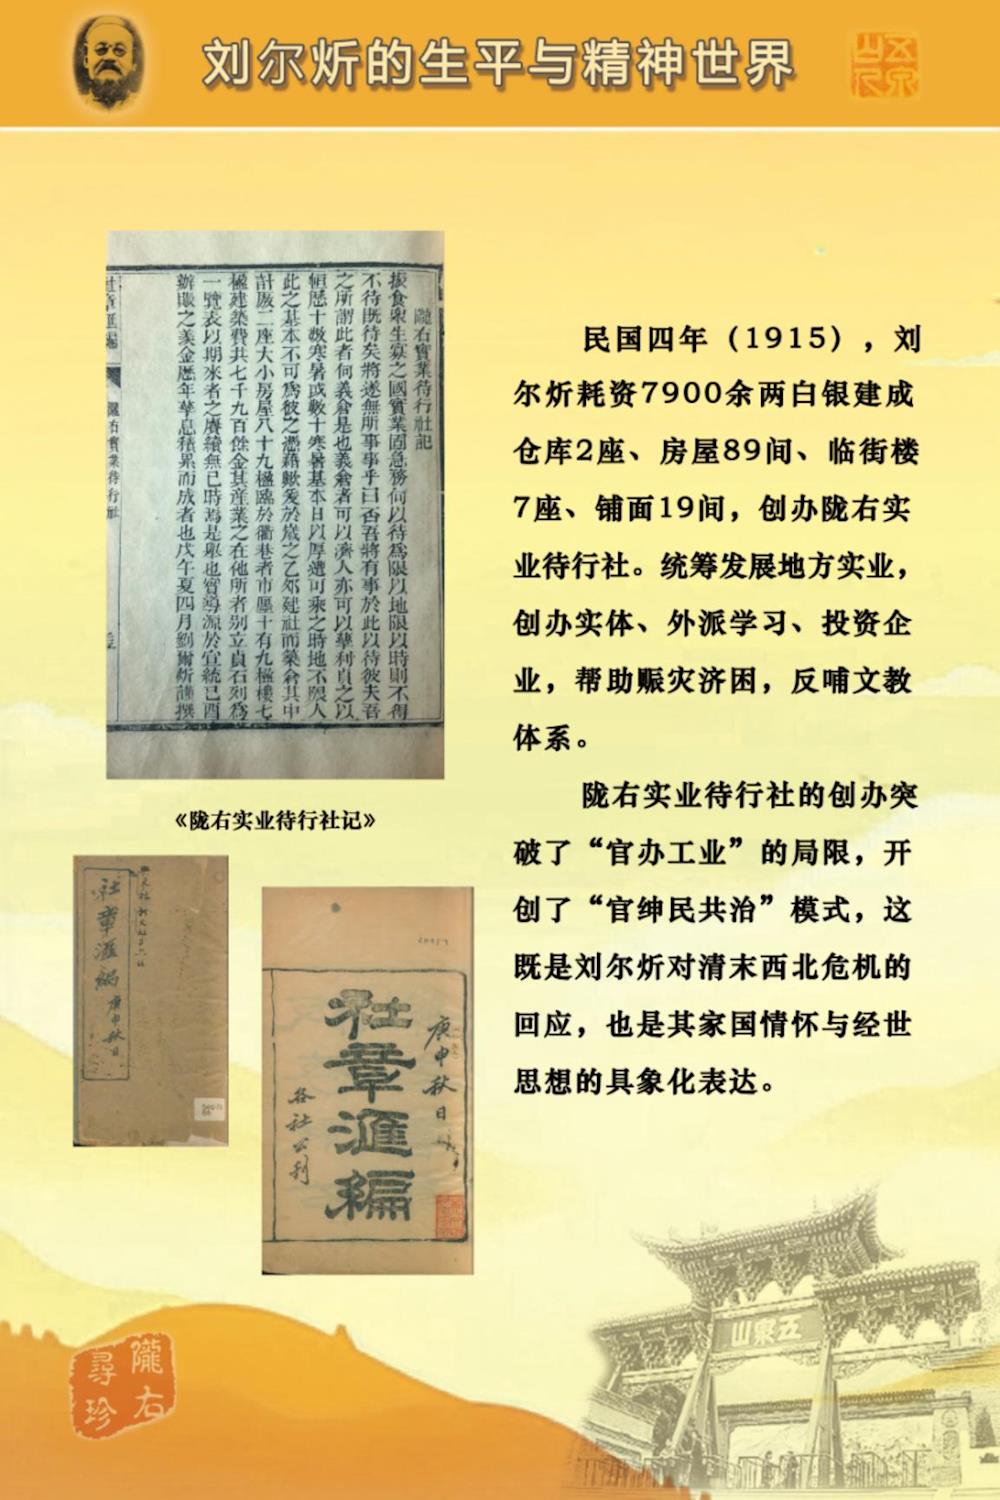 刘尔炘的生平与精神世界
五泉
山人
隴右實業待行社記
振食衆生寡之國實業固急務何以待爲限以地限以時則不得
不待既待矣將遂無所事事乎曰否吾將有事於此以待彼夫吾
之所謂此者何義倉是也義倉者可以濟人亦可以孳利貞之以
恒歷十數寒暑或數十寒暑基本日以厚遭可乘之時地不限人
此之基本不可爲彼之憑藉歟爰於歲之乙卯建社而築倉其中
計廒二座大小房屋八十九楹臨於衢巷者市廛十有九楹樓七
楹建築費共七千九百餘金其産業之在他所者别立貞石列爲
一覽表以期來者之賡續無已時焉是舉也實導源於宣統己酉
辦賑之義金歷年孳息積累而成者也戊午夏四月劉爾炘謹撰
社章匯編
隴右實業待行社
《陇右实业待行社记》
社章滙編
庚申秋日
庚申秋日
社章滙編
各社公刊
民国四年（1915），刘
尔炘耗资7900余两白银建成
仓库2座、房屋89间、临街楼
7座、铺面19间，创办陇右实
业待行社。统筹发展地方实业，
创办实体、外派学习、投资企
业，帮助赈灾济困，反哺文教
体系。
陇右实业待行社的创办突
破了“官办工业”的局限，开
创了“官绅民共治”模式，这
既是刘尔炘对清末西北危机的
回应，也是其家国情怀与经世
思想的具象化表达。
五泉山
隴右
尋珍